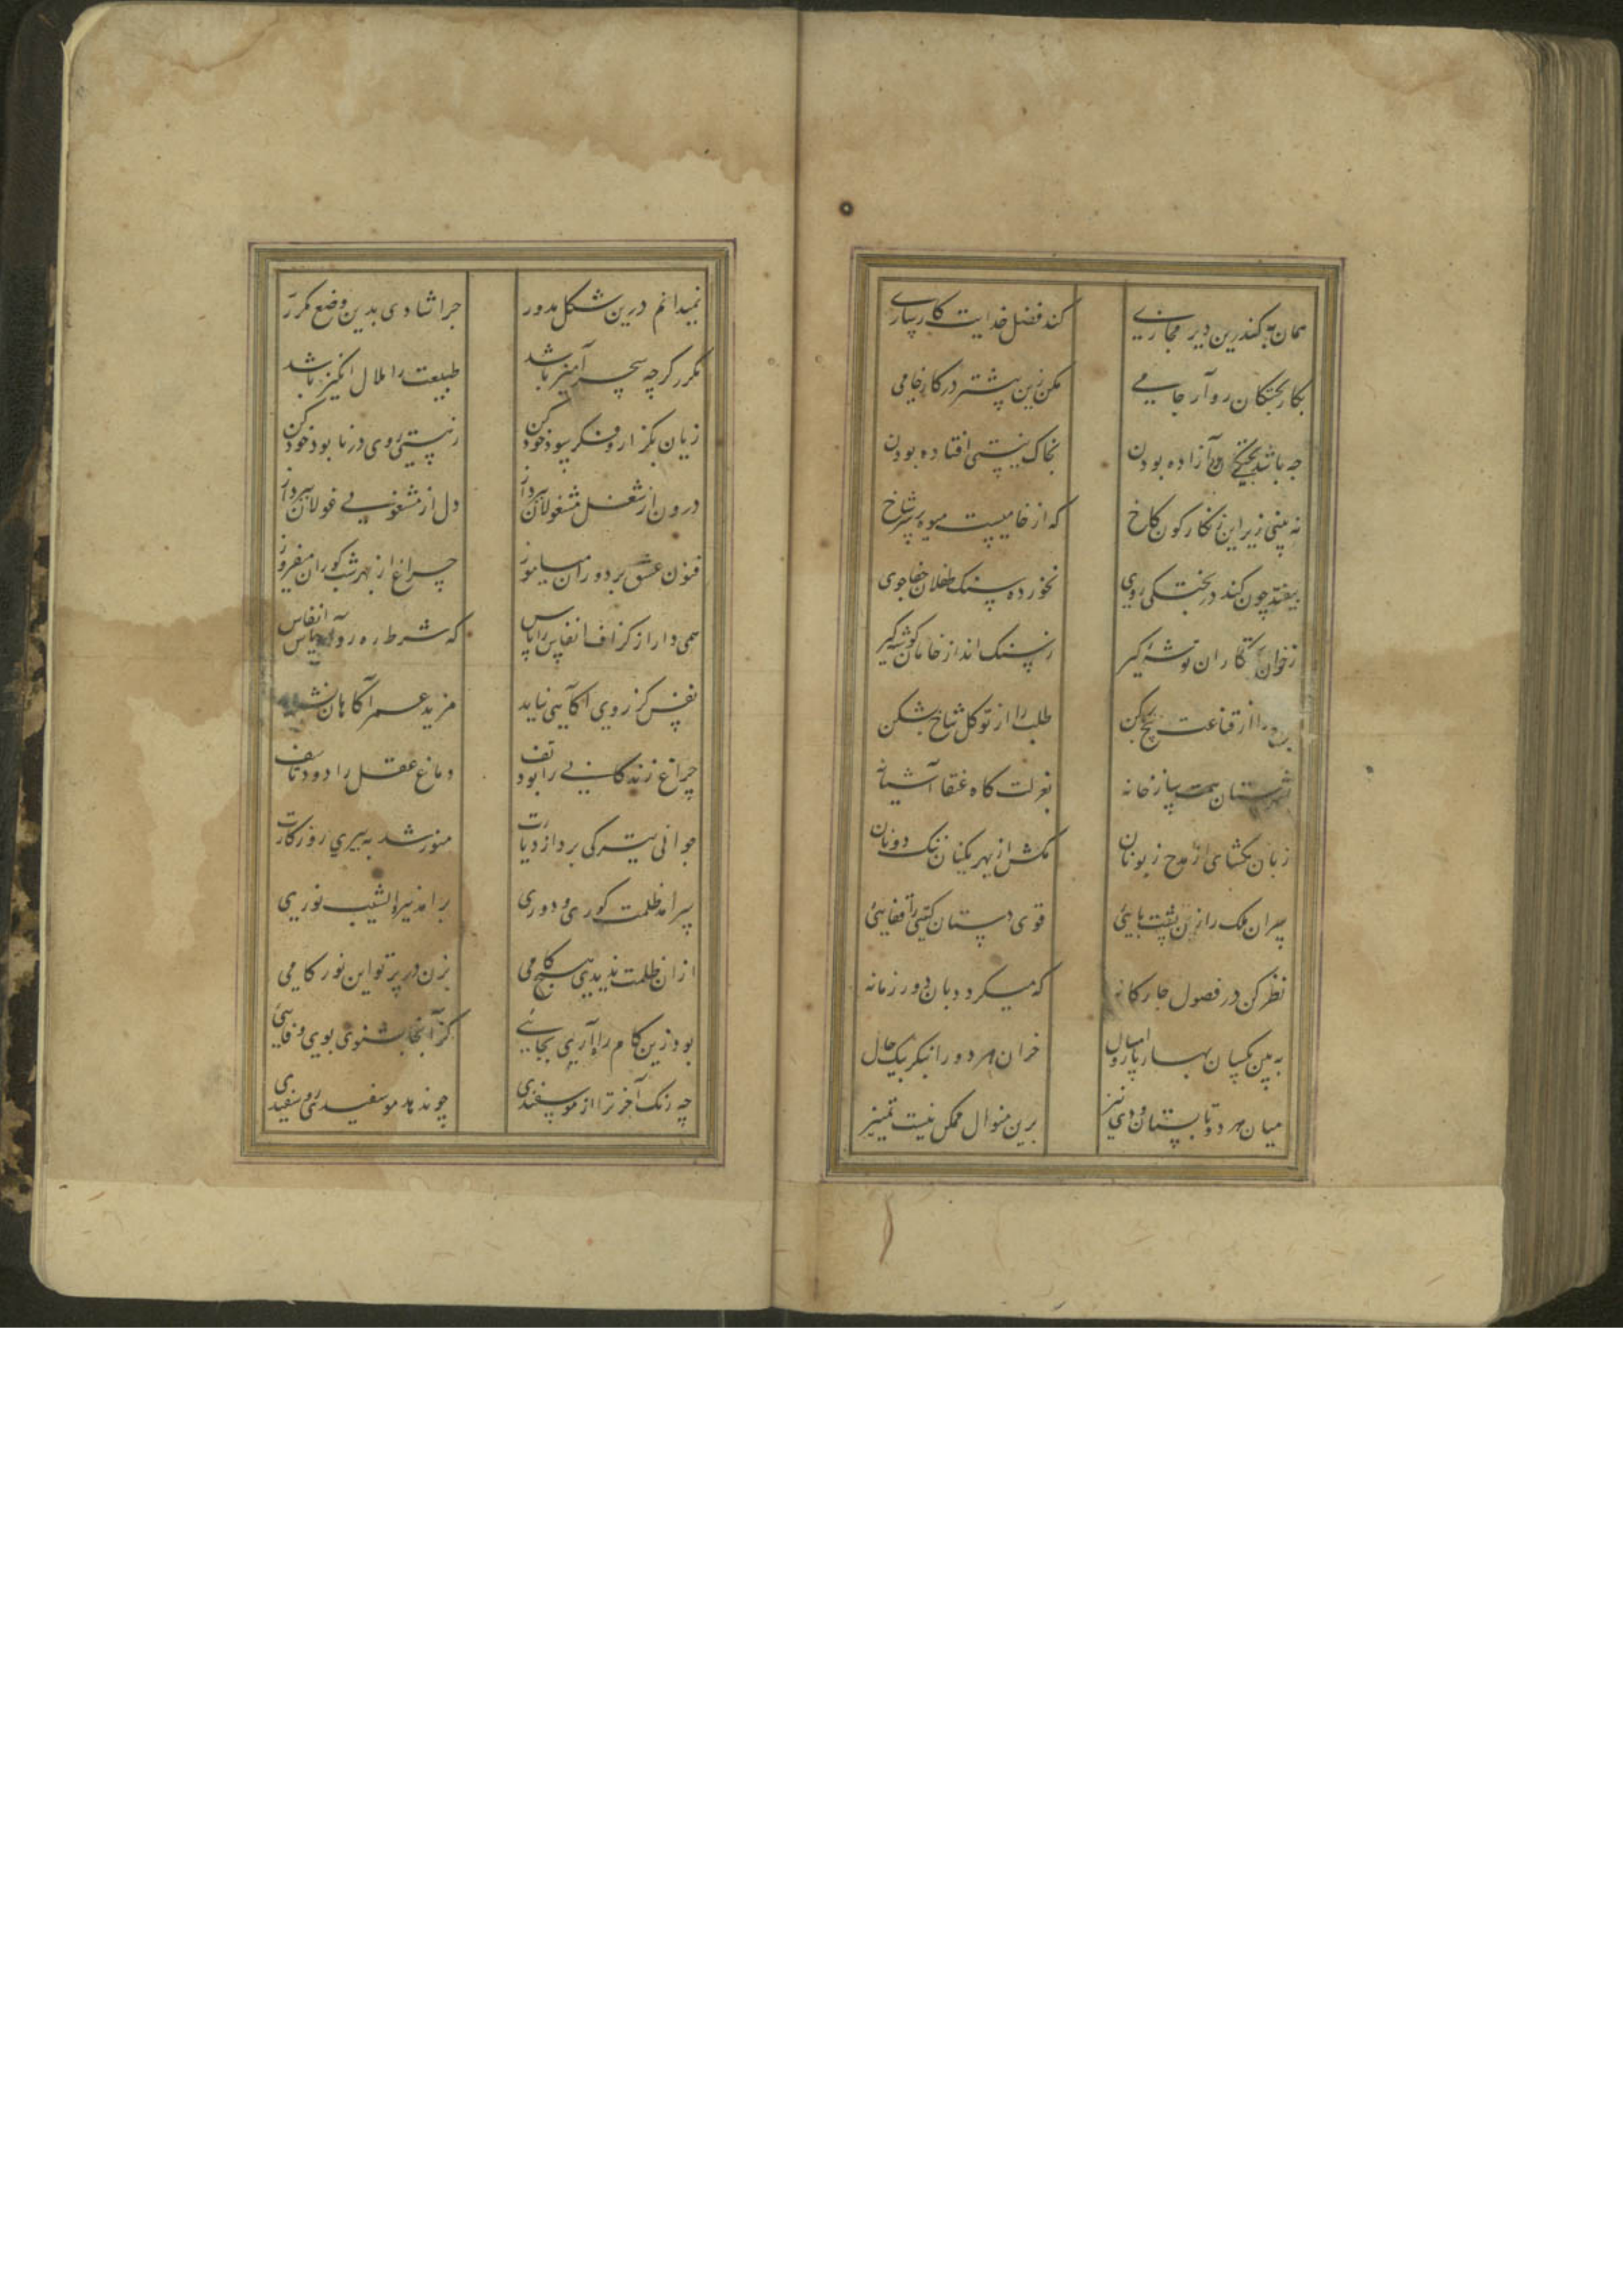 همان به کندرین دیر مجازی کند فضل خدایت کارسازی
بکار پختکان رو آر جامی مکن زین پیشتر در کار خامی
چه باشد پختکی آزاده بودن بخاک نیستی افتاده بودن
نه بینی زیر این زنکارکون کاخ که از خامیست میوه بر سر شاخ
بیفتد چون کند در پختکی روی نخورده سنک طفلان جفاجوی
زخوان کاران توشه کیر زسنک انداز خامان کوشه کیر
را از قناعت بیخ کن طلب را از توکل شاخ بشکن
بشهرستان همت ساز خانه بعزلت کاه عنقا آشیانه
زبان مکشای از مدح زبونان مکش از بهر یکنان ننک دونان
سران ملک را زن پشت پایی قوی دستان کیتی را قفایی
نظر کن در فصول چارکانه که میکردد بان دور زمانه
به بین یکسان بهار امسال و پارین خزان هر دو را بنکر بیک حال
میان هر دو تابستان و دی نیز برین منوال ممکن نیست تمییز
نمیدانم درین شکل مدور چرا شادی بدین وضع مکرر
مکرر کرچه سحر آمیز باشد طبیعت را ملال انکیز باشد
زیان بکزار و فکر سود خود کن زنیستی روی در نابود خود کن
درون از شغل مشغولان بپرداز دل از مشغولی غولان بپرداز
فنون عشق بر دوران میاموز چراغ از بهر شب کوران میفروز
همی دار از کزاف انفاس را پاس که شرط رهروان پاس انفاس
نفس کز روی آکاهی نیاید مزید عمر آکاهان نشاید
چراغ زندکانی را بود تف دماغ عقل را دود تاسف
جوانی تیرکی برد از دیارت منور شد به پیری روزکارت
سرامد ظلمت کوری و دوری برامد نیر الشیب نوری
ازان ظلمت ندیدی هیچ کامی بزن در پرتو این نور کامی
بود زین کام ره آری بجایی کز آنجا بشنوی بوی وفایی
چه رنک آخر ترا از مو سفیدی چو ندهد مو سفید روسفیدی